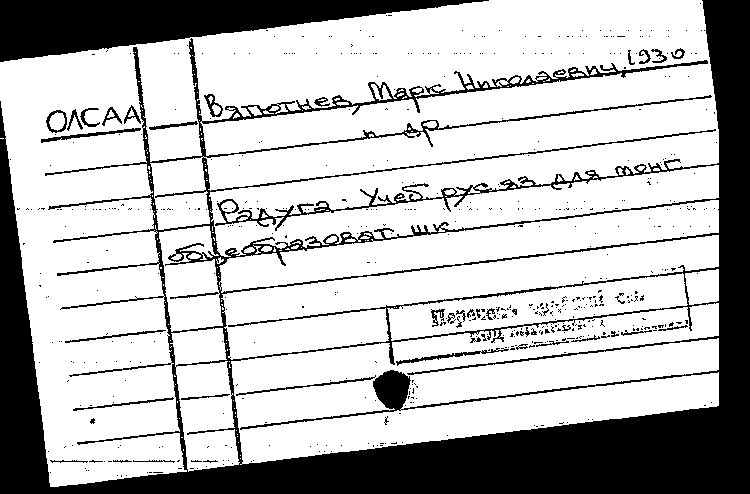 ОЛСАА Вятютнев, Марк Николаевич, 1930
и др.
Радуга. Учеб. рус. яз. для монг.
общеобразоват. шк.
под